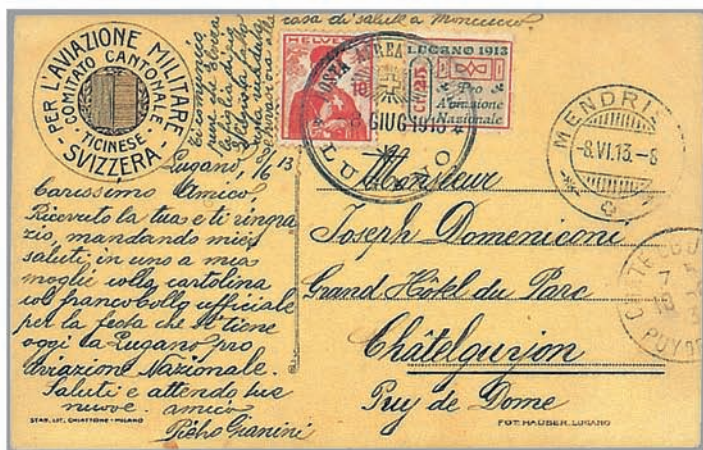 casa di salute a Moncucco.
PER L'AVIAZIONE MILITARE
COMITATO CANTONALE
TICINESE
SVIZZERA
HELVETIA
10
POSTA AEREA
8 GIUG 1913
LUGANO
LUGANO 1913
Cmi 25
Pro
Aviazione
Nazionale
MENDRIS
-8.VI.13.-8
Lugano, 8/6 13
Carissimo Amico
Ricevuto la tua e ti ringra
zio, mandando miei
saluti in uno a mia
moglie colla cartolina
col francobollo ufficiale
per la festa che si tiene
oggi a Lugano pro
Aviazione Nazionale.
Saluti e attendo tue
nuove. amico
Pietro Gianini
Monsieur
Joseph Domeniconi
Grand Hôtel du Parc
Châtelguyon
Puy de Dome
STAB. LIT. CHIATTONE - MILANO
FOT. HAUSER. LUGANO